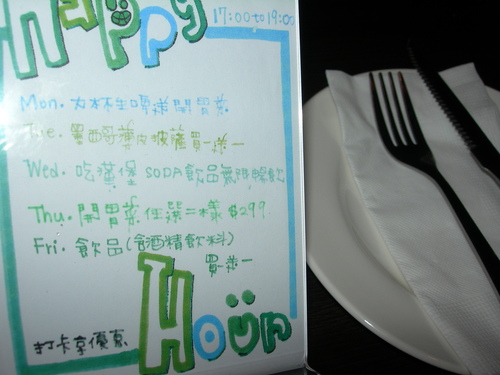 Happy
17:00 to 19:00
Mon. 大杯生啤送開胃菜
Tue. 墨西哥薄肉披薩買一送一
Wed. 吃漢堡 SODA飲品無限暢飲
Thu. 開胃菜任選二樣 $299
Fri. 飲品(含酒精飲料)
買一送一
Hour
打卡享優惠